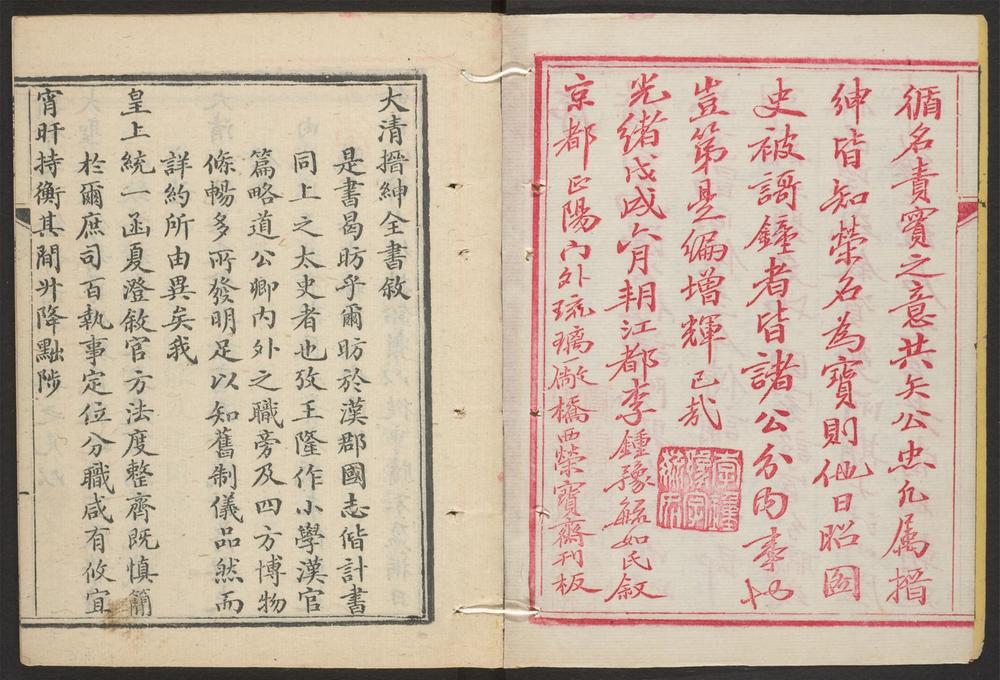 循名責實之意共矢公忠凡属搢
紳皆知榮名為寶則他日昭圖
史被謌鐘者皆諸公分內事也
豈第是編增輝已哉
光緒戊戌六月朔江都李鍾豫毓如氏敘
京都正陽門外琉璃廠橋西榮寶齋刊板
大清搢紳全書敘
是書曷昉乎爾昉於漢郡國志偕計書
同上之太史者也攷王隆作小學漢官
篇略道公卿內外之職旁及四方博物
條暢多所發明足以知舊制儀品然而
詳約所由異矣我
皇上統一函夏澄敘官方法度整齊既慎簡
於爾庶司百執事定位分職咸有攸宜
宵旰持衡其間升降黜陟